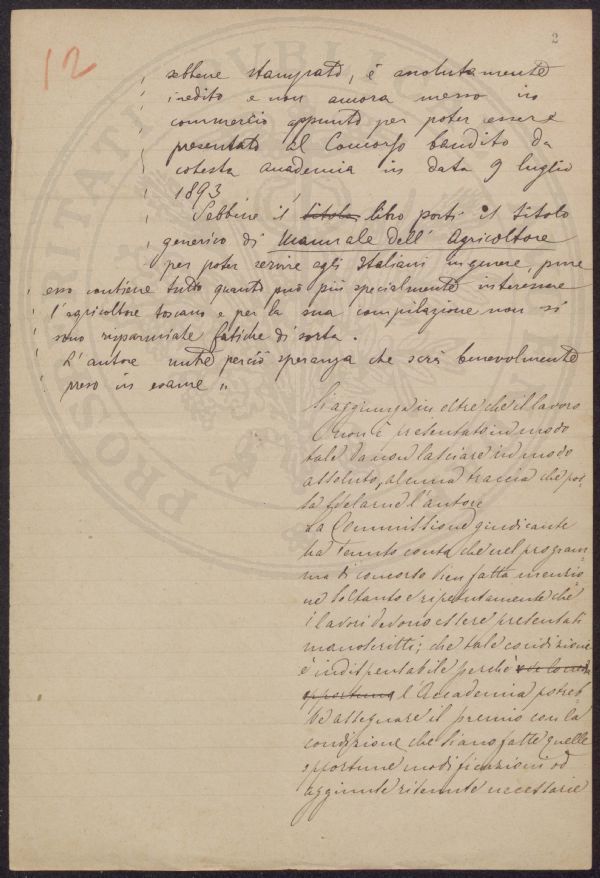 12
2
sebbene stampato, è assolutamente
inedito e non ancora messo in
commercio appunto per poter essere
presentato al Concorso bandito da
cotesta accademia in data 9 luglio
1893
Sebbene il titolo libro porti il titolo
generico di Manuale dell' Agricoltore
per poter servire agli Italiani in genere, pure
esso contiene tutto quanto può più specialmente interessare
l'agricoltore toscano e per la sua compilazione non si
sono risparmiate fatiche di sorta.
L'autore nutre perciò speranza che sarà benevolmente
preso in esame „
Si aggiunga in oltre che il lavoro
non è presentato in modo
tale da non lasciare in modo
assoluto, alcuna traccia che pos-
sa svelarne l'autore
La Commissione giudicante
ha tenuto conto che nel program-
ma di concorso vien fatta menzio-
ne soltanto e ripetutamente che
i lavori devono essere presentati
manoscritti; che tale condizione
è indispensabile perchè
opportuna l'Accademia potreb-
be assegnare il premio con la
condizione che siano fatte quelle
opportune modificazioni od
aggiunte ritenute necessarie
PROSPERITATI PUBLICAE